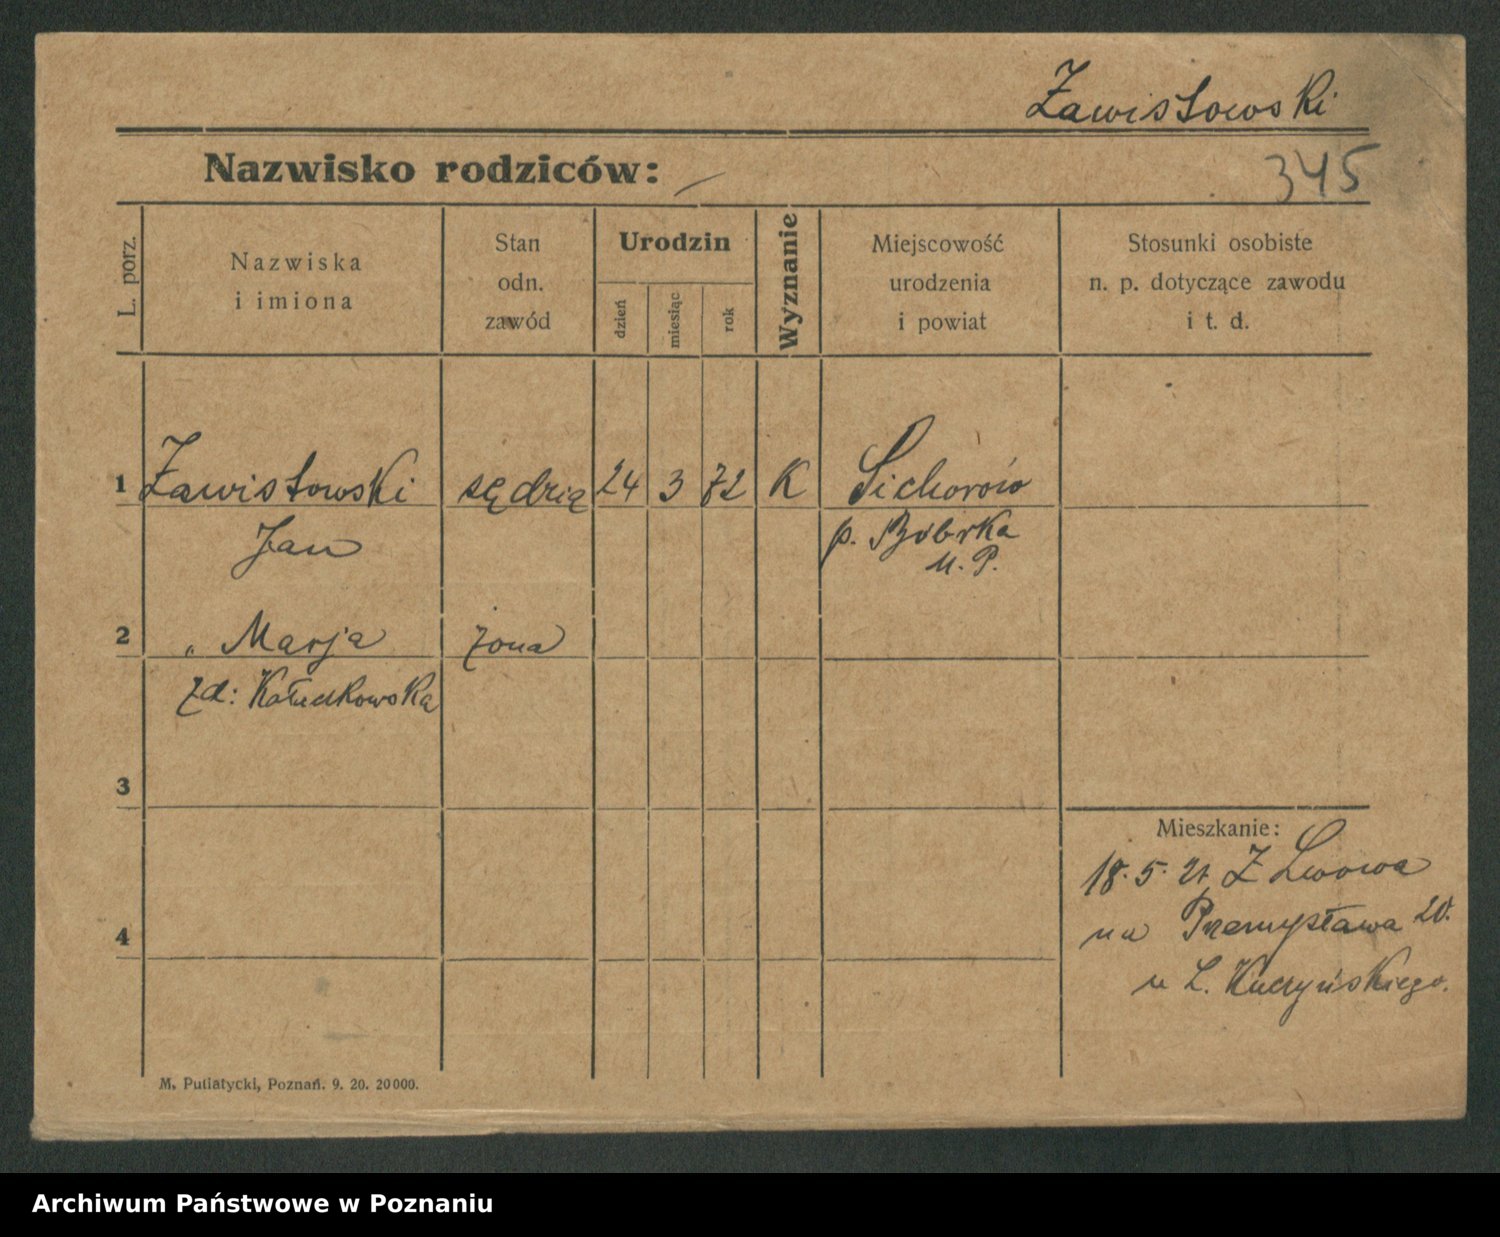 Zawistowski
Nazwisko rodziców: —
345
L. porz.
Nazwiska
i imiona
Stan
odn.
zawód
Urodzin
dzień
miesiąc
rok
Wyznanie
Miejscowość
urodzenia
i powiat
Stosunki osobiste
n. p. dotyczące zawodu
i t. d.
1 Zawistowski sędzia 24 3 72 K Sichorów
Jan p. Bóbrka
M. P.
2 „ Marja żona
zd:
3
Mieszkanie:
18. 5. 21 Z Lwowa
4
na Przemysława 20.
u L. Kuczyńskiego.
M. Putiatycki, Poznań. 9. 20. 20000.
Archiwum Państwowe w Poznaniu